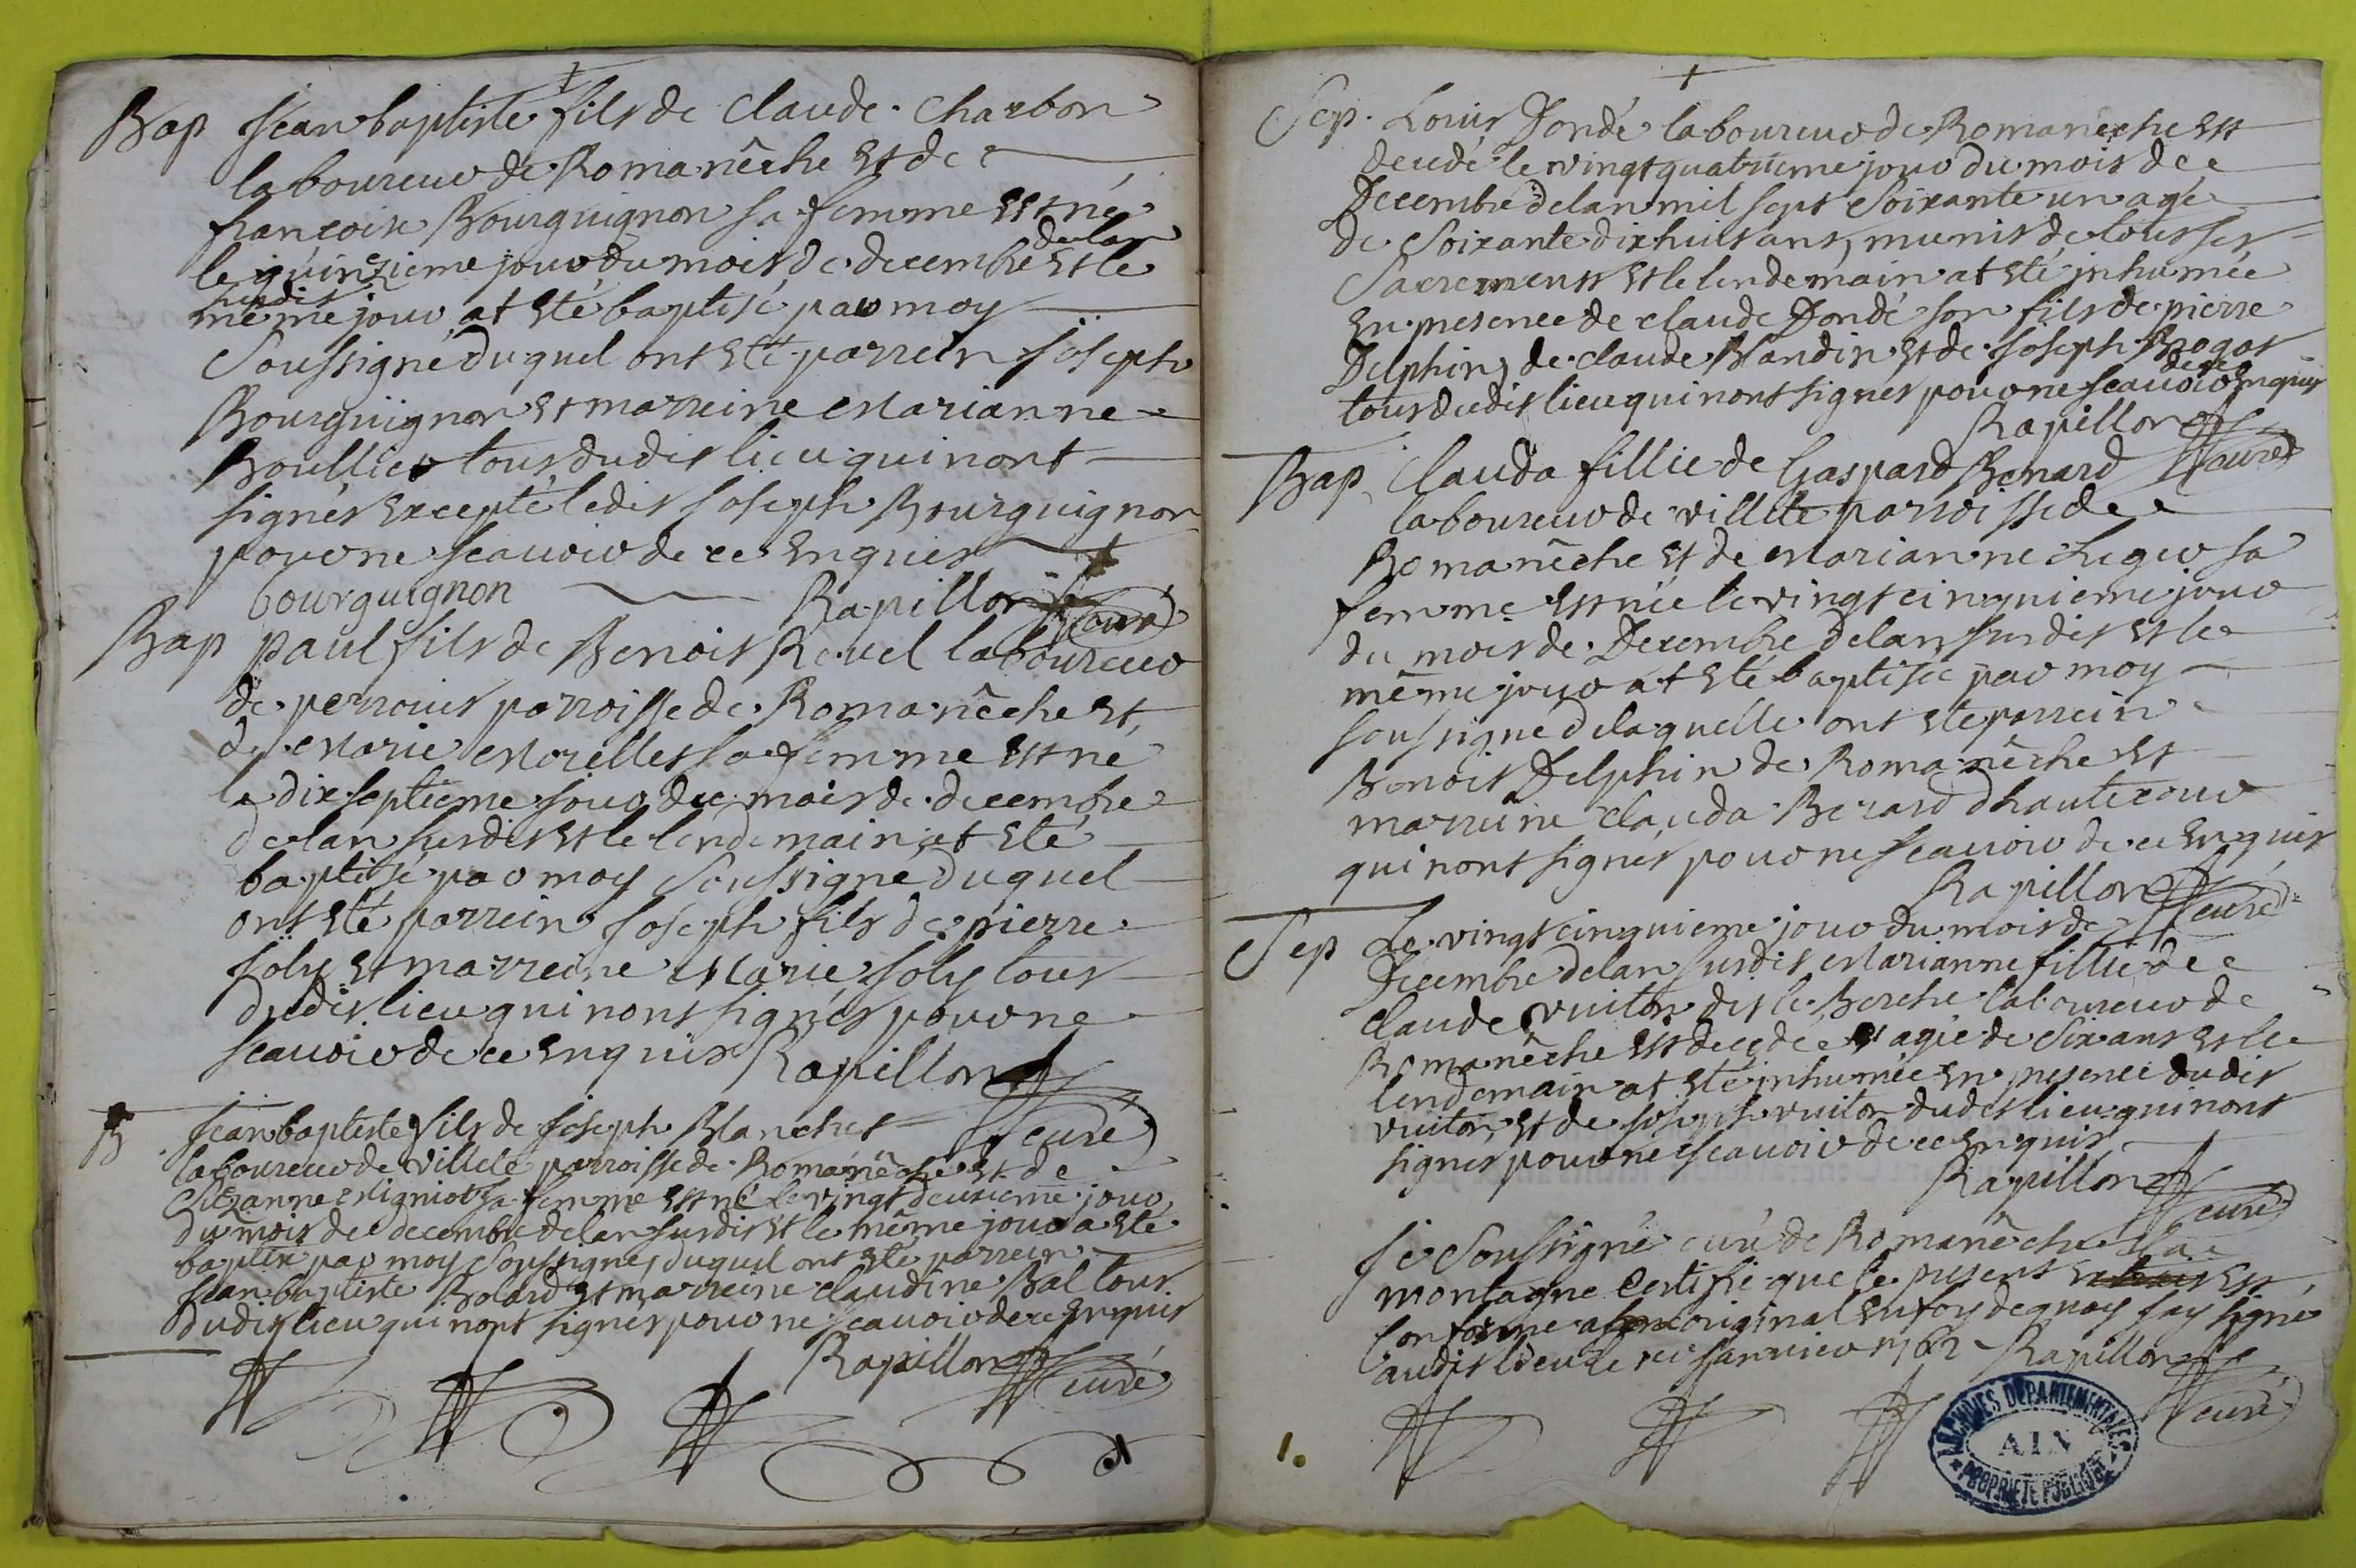 Bap Jean baptiste fils de Claude Charbon
laboureur de Romanêche Et de
francoise Bourguignon sa femme Est né
le quinzieme jour du mois de decembre de lan
susdit Et le
même jour at Eté baptisé par moy
Soussigné duquel ont Eté parrein Joseph
Bourguignon Et marreine Marianne
Boullier tous dudit lieu qui nont
signés Excepté ledit Joseph Bourguignon
pour ne scauoir de ce Enquis
bourguignon Rapillon Curé
Bap paul fils de Benoit Reuel laboureur
de perrouis parroisse de Romanêche Et
de Marie Morelles sa femme Est né
le dix septieme jour du mois de decembre
de lan susdit Et le lendemain at Eté
baptisé par moy Soussigné duquel
ont Eté parrein Joseph fils de pierre
Joly Et marreine Marie Joly tous
dudit lieu qui nont signés pour ne
scauoir de ce Enquis Rapillon
curé
B Jean baptiste fils de Joseph Blanchet
laboureur de Villete parroisse de Romanêche Et de
Suzanne Migniot sa femme Est né Le vingt deuxieme jour
du mois de decembre de lan susdit Et le même jour a Eté
baptisé par moy Soussigné, duquel ont Eté parrein
Jean baptiste Bolard Et marreine claudine Bal tous
dudit lieu qui nont signés pour ne scauoir de ce Enquis
Rapillon
curé
Sep. Louis Dondé laboureur de Romaneche Est
decedé le vingt quatrieme jour du mois de
Decembre de lan mil sept Soixante un agé
de Soixante dix huit ans, munis de tous ses
Sacremens Et le lendemain at Eté inhumée
En presence de claude Dondé son fils de pierre
Delphin, de claude Blandin Et de Joseph Brogat
tous dudit lieu qui nont signés pour ne scauoir de ce Enquis
Rapillon
curé
Bap Clauda fillie de Gaspard Benard
laboureur de villete parroisse de
Romanêche Et de Marianne Chegur sa
femme Est née le vingt cinquieme jour
du mois de Decembre de lan susdit Et le
même jour at Eté baptisée par moy
soussigné de laquelle ont Ete parrein
Benoit Delphin de Romanêche Et
marreine clauda Berard d hautecour
qui nont signés pour ne scauoir de ce Enquis
Rapillon
curé
Sep Le vingt cinquieme jour du mois de
Decembre de lan susdit Marianne fillie de
claude vuiton dit le Berche laboureur de
Romanêche Est decedée Et agée de Six ans Et le
lendemain at Eté inhumée En presence dudit
vuiton, Et de Joseph vuiton dudit lieu qui nont
signés pour ne scauoir de ce Enquis
Rapillon
curé
Je Soussigné curé de Romanêche La
montagne Certifie que le present Extrait Est
Conforme a son original En foy de quoy jay signé
audit lieu ce janvier 1762 Rapillon
curé
1.
ARCHIVES DÉPARTEMENTALES
AIN
PROPRIÉTÉ PUBLIQUE